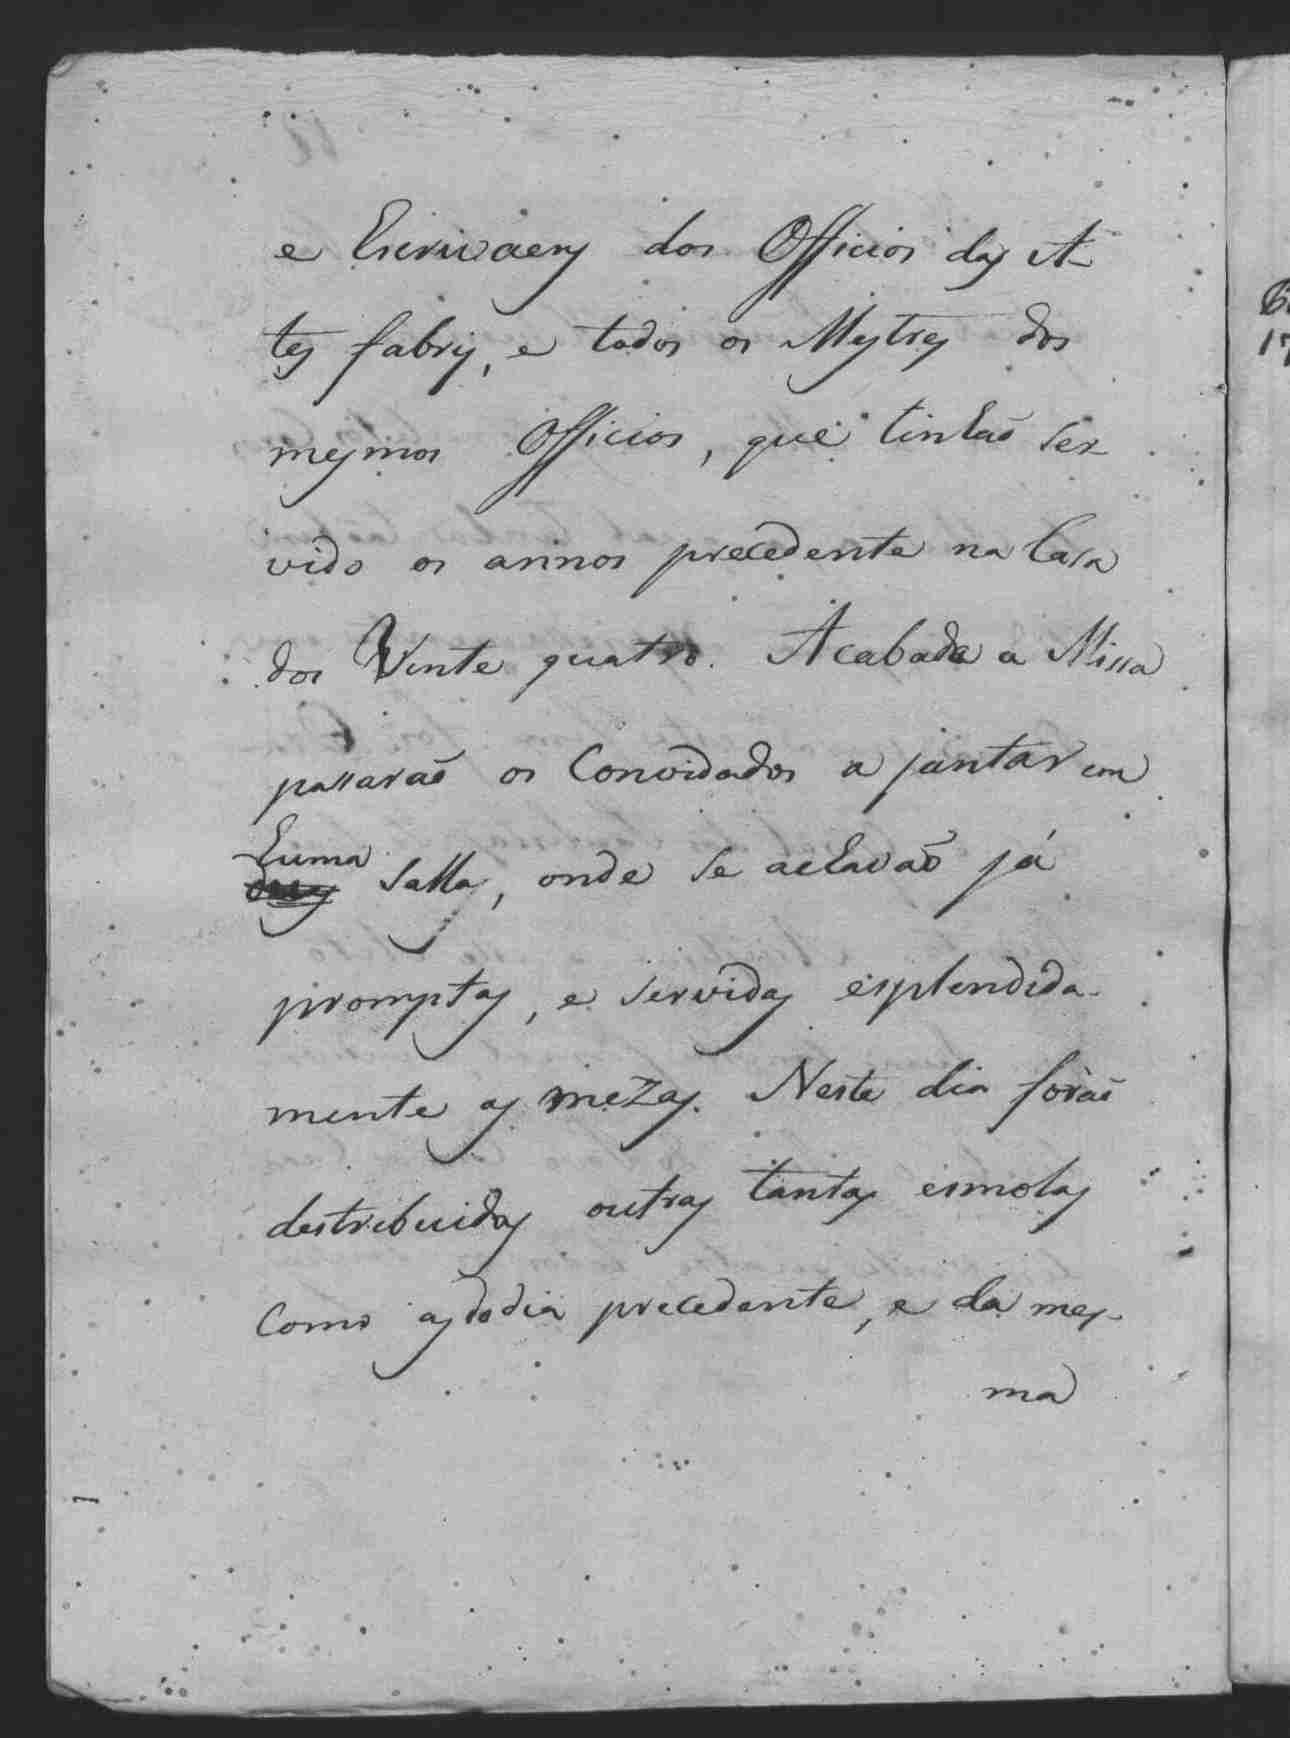 e Escrivaens dos Officios das A
tes fabris, e todos os Mestres dos
mesmos Officios, que tinhaõ ser
vido os annos precedente na Casa
dos Vinte quatro. Acabada a Missa
passaraõ os Convidados a jantar em
huma
salla, onde se achavaõ já
promptas, e servidas esplendida-
mente as mezas. Neste dia foraõ
destribuidas outras tantas esmolas
Como as do dia precedente, e da mes-
ma